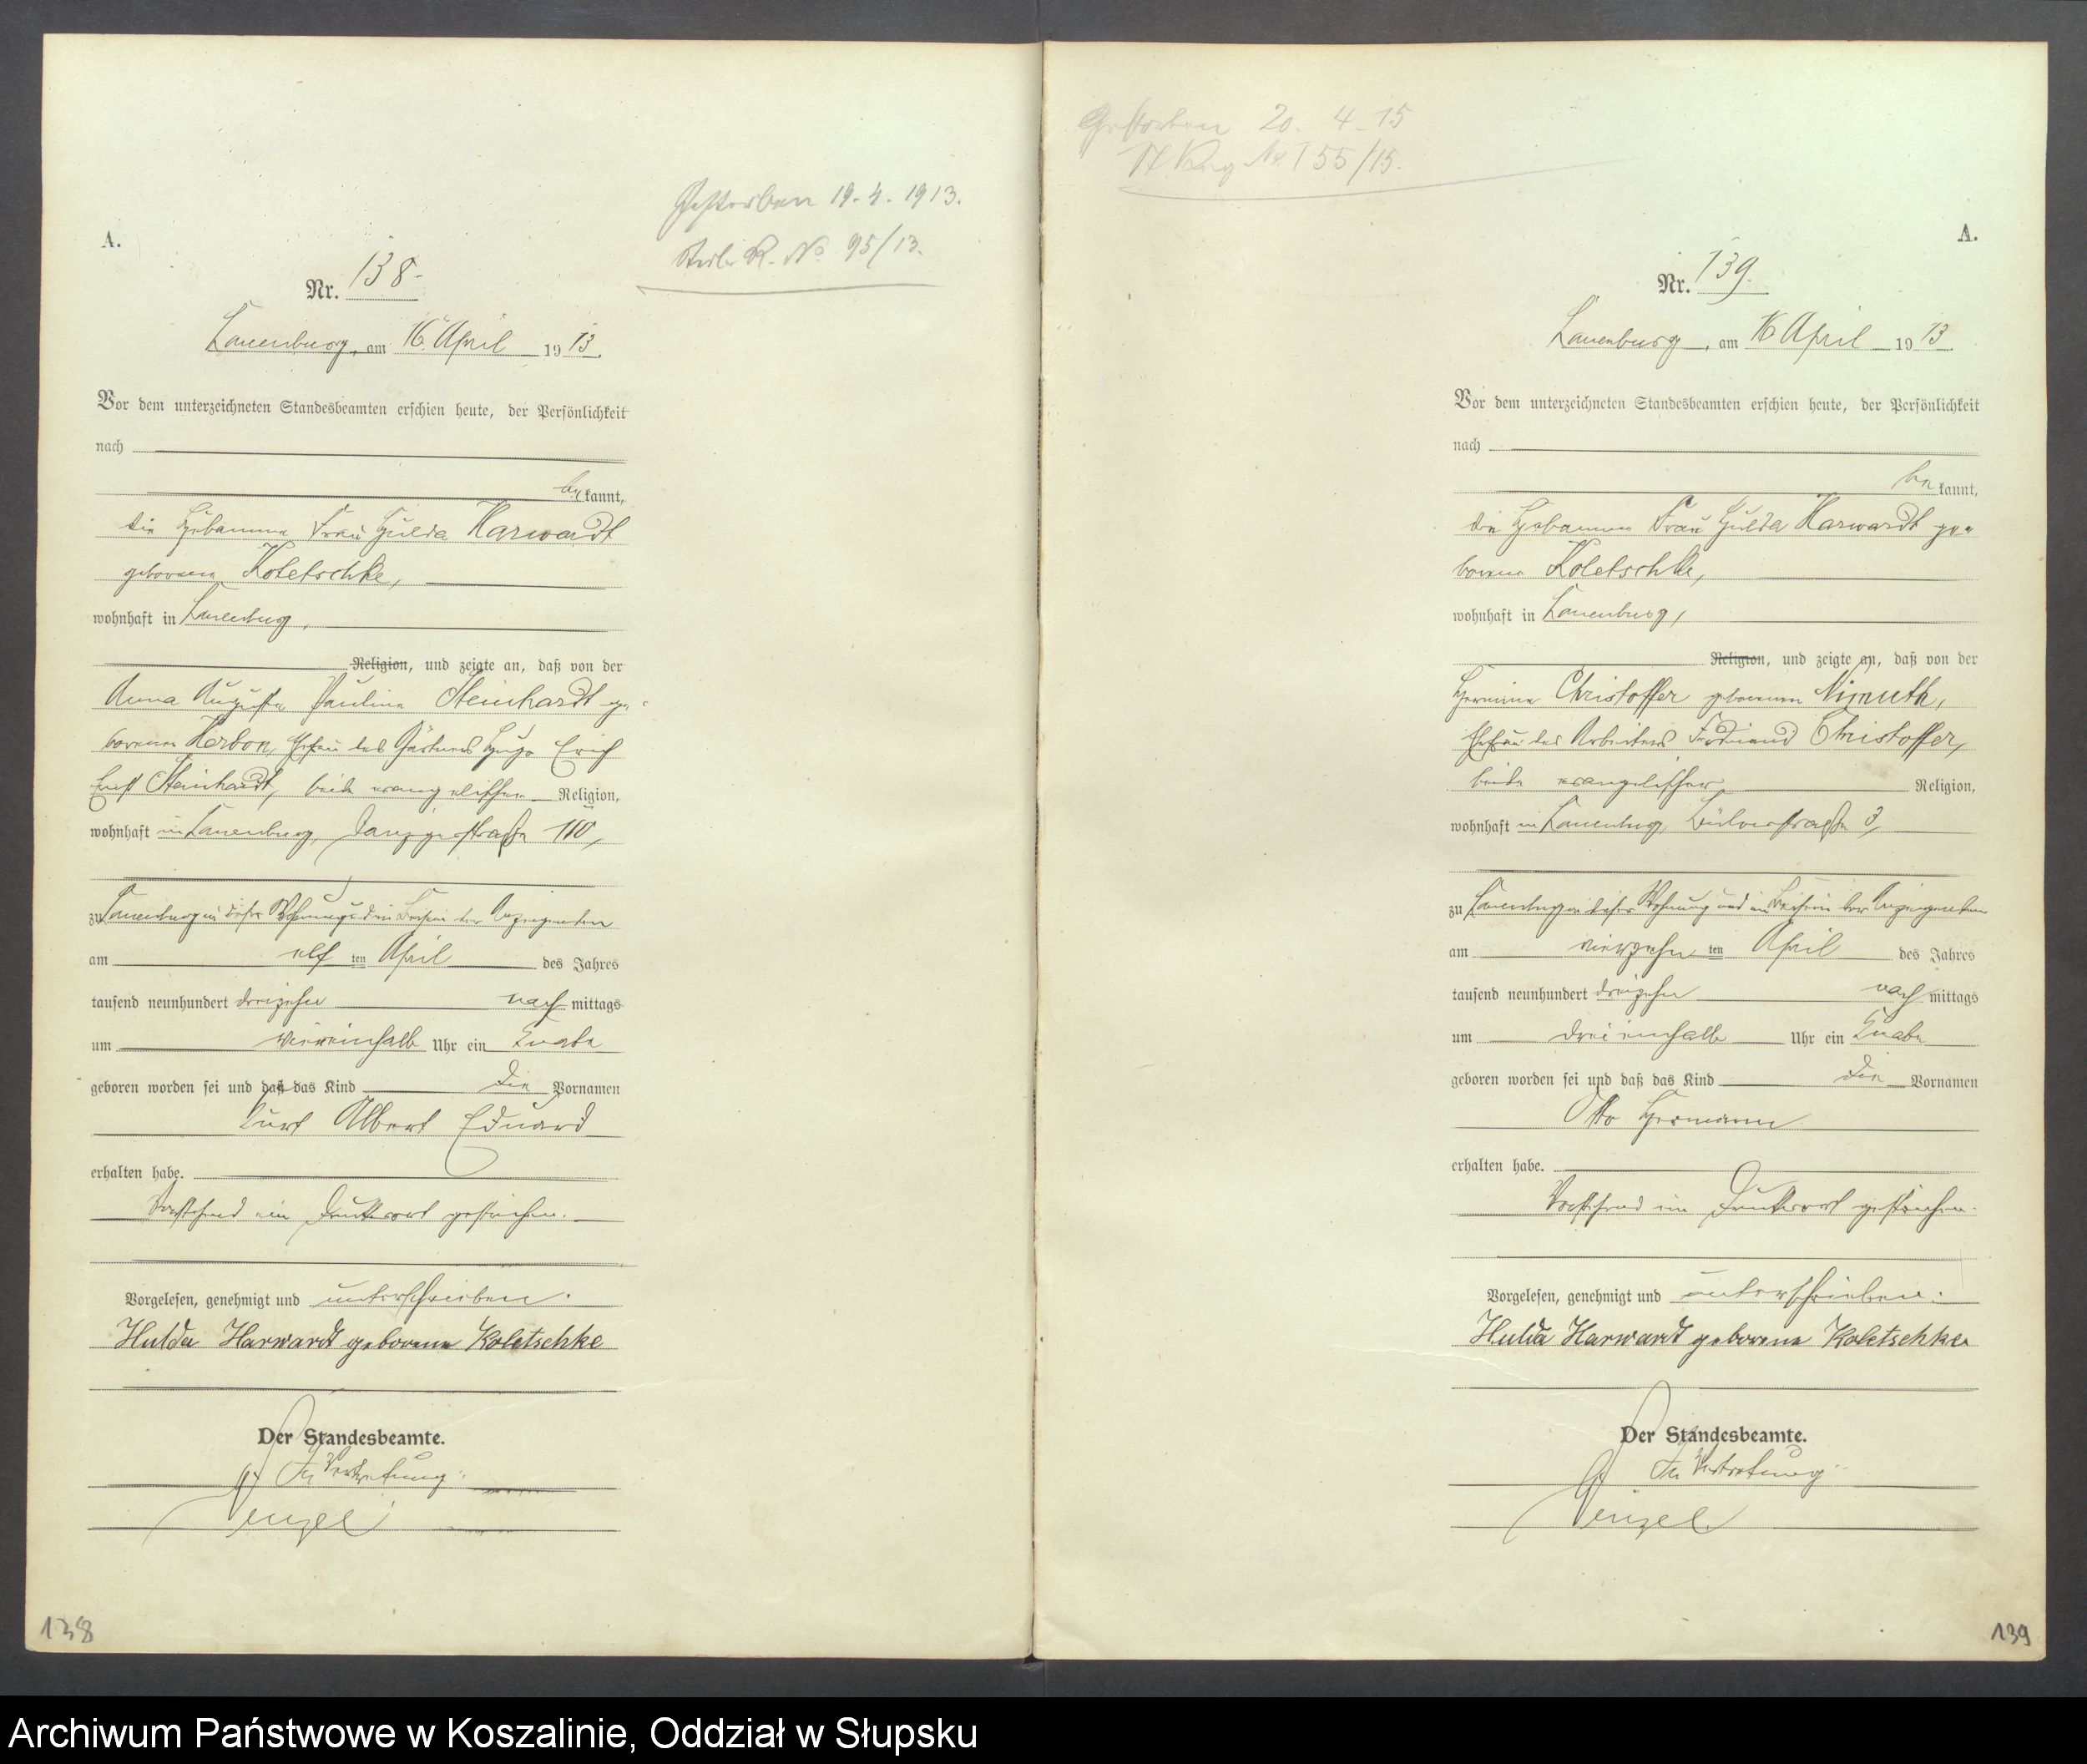 Gestorben 19.4.1913.
Sterb. R. No 95/13.
A.
Nr. 138.
Lauenburg, am 16. April 1913.
Vor dem unterzeichneten Standesbeamten erschien heute, der Persönlichkeit
nach
bekannt,
die Hebamme Frau Hulda Harwardt
geborene Koletschke,
wohnhaft in Lauenburg,
Religion, und zeigte an, daß von der
Anna Auguste Pauline Steinhardt ge-
borenen Kerbon, Ehefrau des Gärtners Hugo Erich
Ernst Steinhardt, beide evangelischer Religion,
wohnhaft in Lauenburg, Danzigerstraße 110,
zu Lauenburg in dieser Wohnung und im Beisein der Anzeigenden
am elf ten April des Jahres
tausend neunhundert dreizehn nachmittags
um viereinhalb Uhr ein Knabe
geboren worden sei und daß das Kind die Vornamen
Kurt Albert Eduard
erhalten habe.
Vorstehend ein Druckwort gestrichen.
Vorgelesen, genehmigt und unterschrieben.
Hulda Harwardt geborene Koletschke
Der Standesbeamte.
In Vertretung.
138
Gestorben 20.4.15
St. Reg. No. 155/15.
A.
Nr. 139.
Lauenburg, am 16 April 1913.
Vor dem unterzeichneten Standesbeamten erschien heute, der Persönlichkeit
nach
bekannt,
die Hebamme Frau Hulda Harwardt ge-
borene Koletschke,
wohnhaft in Lauenburg,
Religion, und zeigte an, daß von der
Hermine Christoffer geborenen Nimuth,
Ehefrau des Arbeiters Ferdinand Christoffer,
beide evangelischer Religion,
wohnhaft in Lauenburg, Bülowstraße 3,
zu Lauenburg in dieser Wohnung und im Beisein der Anzeigenden
am vierzehn ten April des Jahres
tausend neunhundert dreizehn nachmittags
um dreieinhalb Uhr ein Knabe
geboren worden sei und daß das Kind die Vornamen
Otto Hermann
erhalten habe.
Vorstehend ein Druckwort gestrichen.
Vorgelesen, genehmigt und unterschrieben.
Hulda Harwardt geborene Koletschke
Der Standesbeamte.
In Vertretung.
139
Archiwum Państwowe w Koszalinie, Oddział w Słupsku